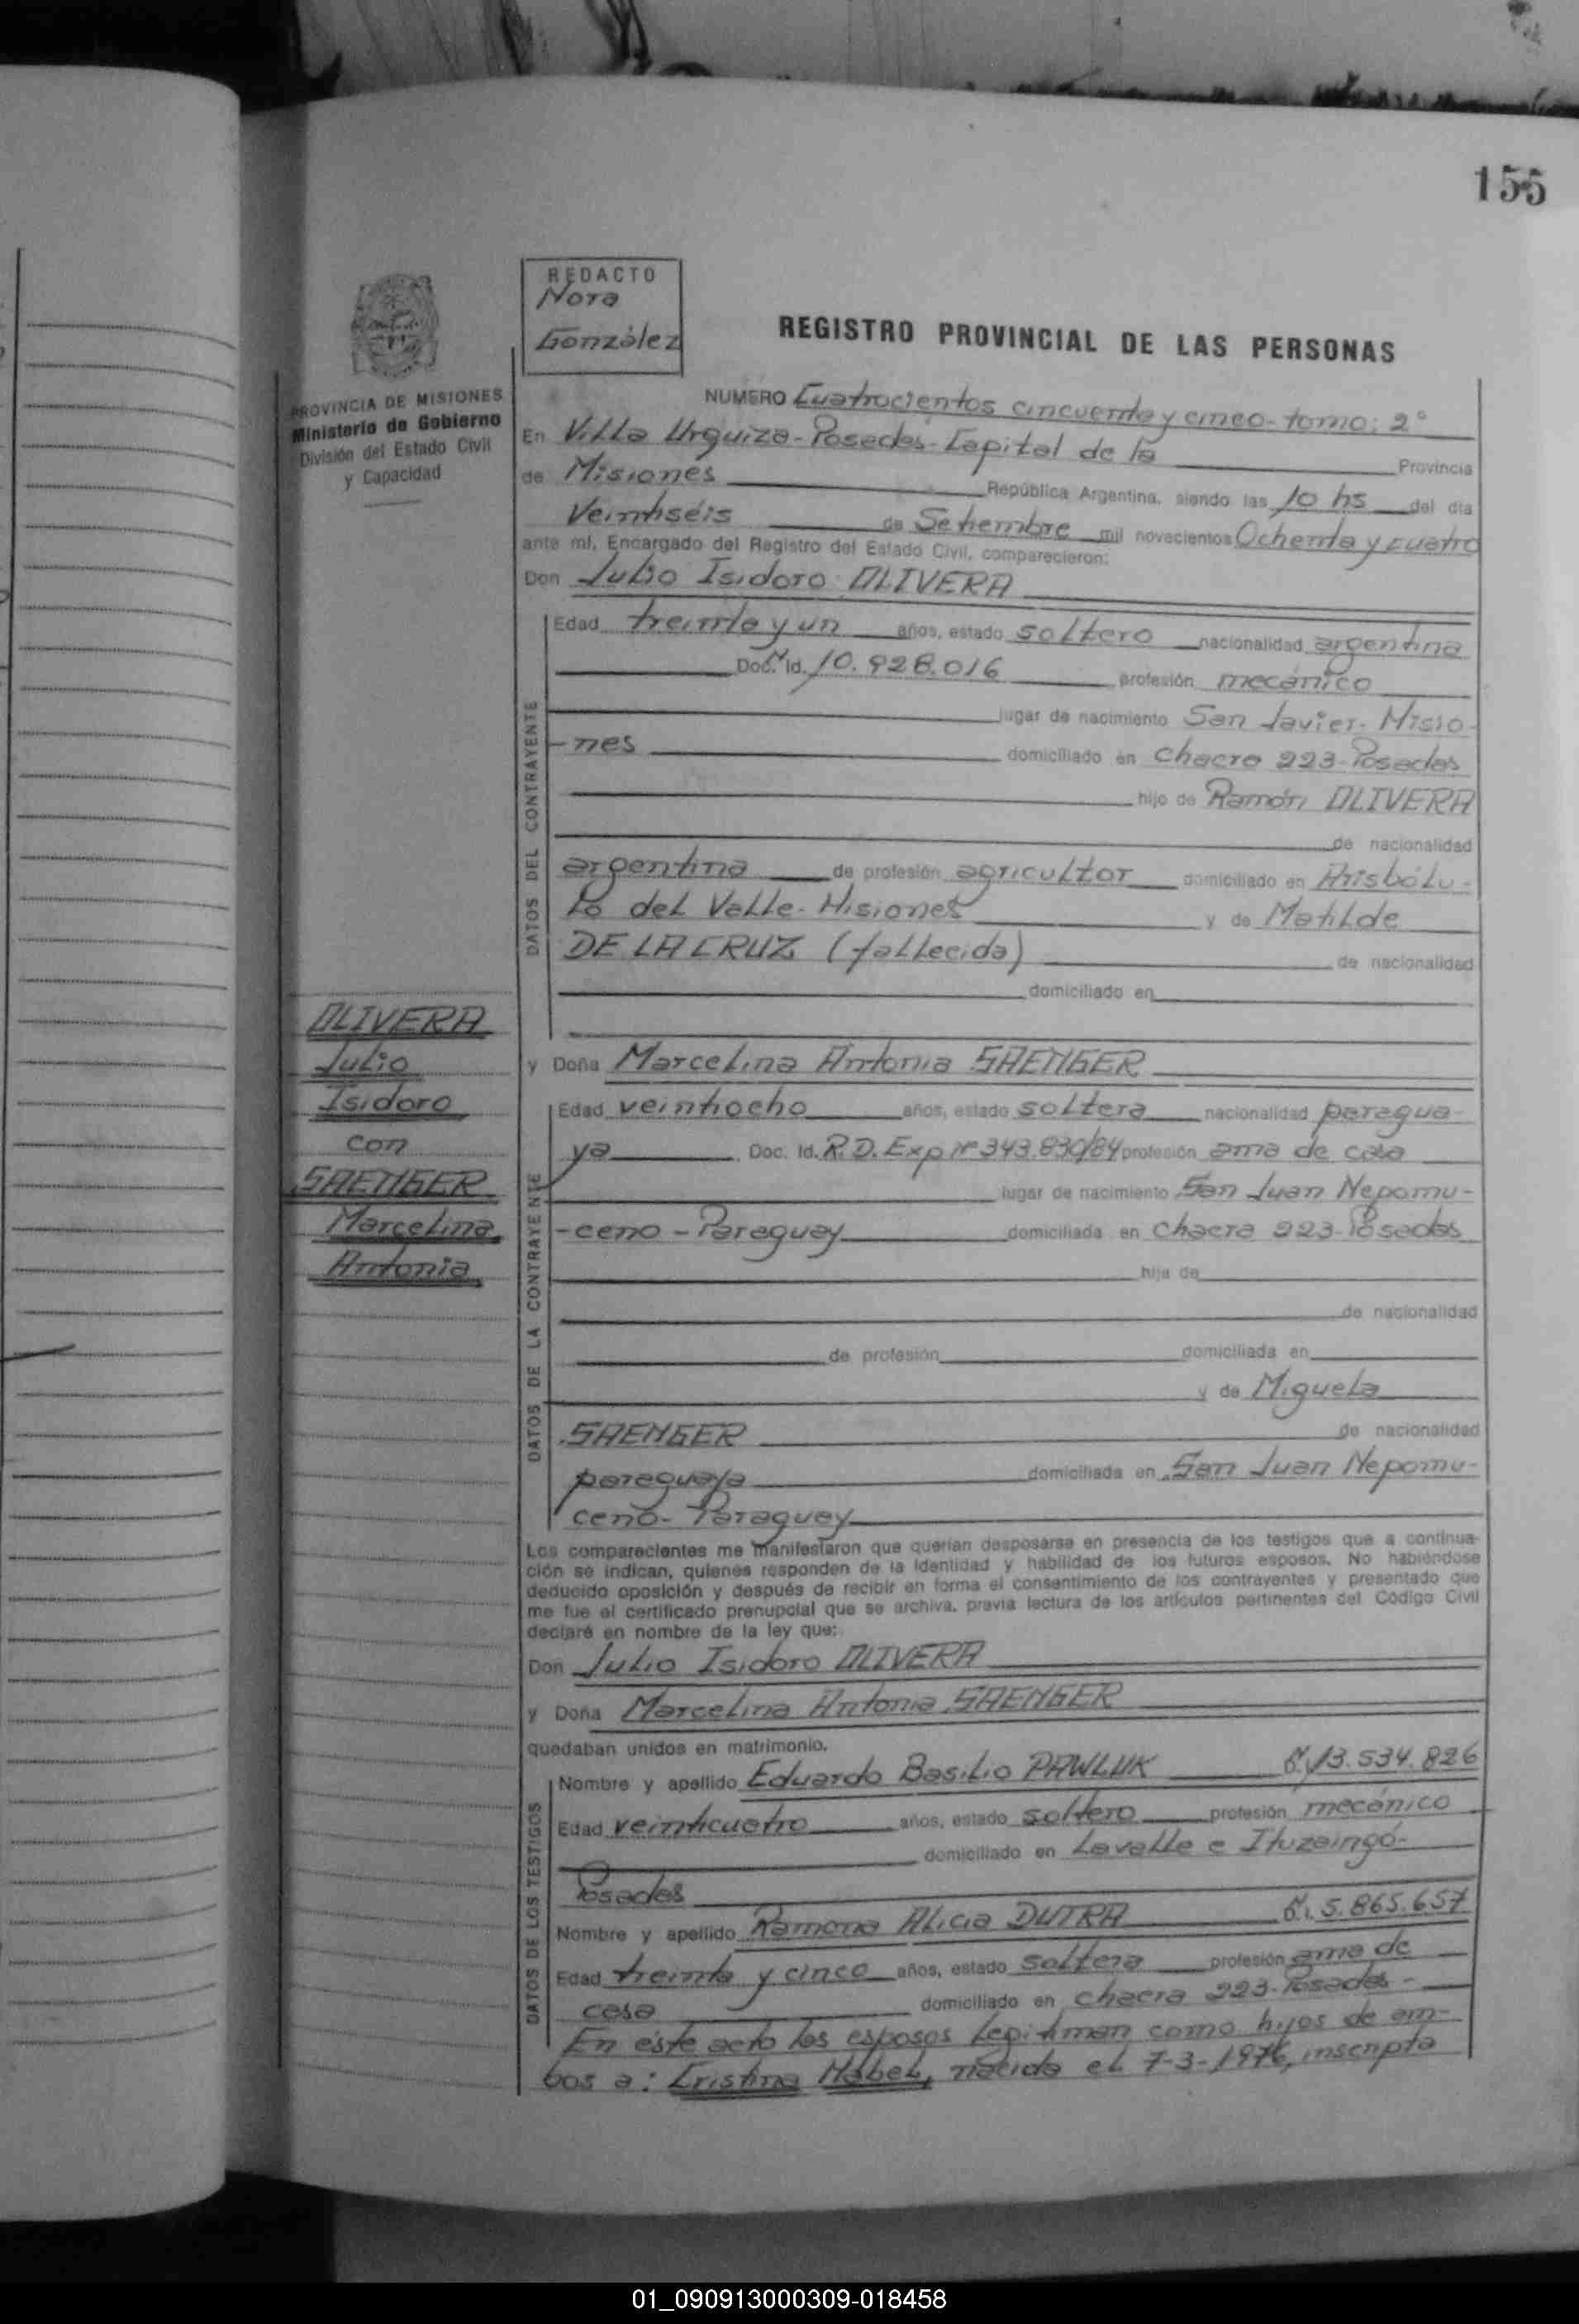 155
REDACTO
Nora
González
REGISTRO PROVINCIAL DE LAS PERSONAS
PROVINCIA DE MISIONES
Ministerio de Gobierno
División del Estado Civil
y Capacidad
NUMERO Cuatrocientos cincuenta y cinco - tomo: 2°
En Villa Urquiza - Posadas - Capital de la Provincia
de Misiones República Argentina, siendo las 10 hs del día
Veintiséis de Setiembre mil novecientos Ochenta y cuatro
ante mí, Encargado del Registro del Estado Civil, comparecieron:
Don Julio Isidoro OLIVERA
DATOS DEL CONTRAYENTE
Edad treinta y un años, estado soltero nacionalidad argentina
Doc. Id. 10.928.016 profesión mecánico
lugar de nacimiento San Javier - Misio-
-nes domiciliado en chacra 223 - Posadas
hijo de Ramón OLIVERA
de nacionalidad
argentina de profesión agricultor domiciliado en Aristóbu-
lo del Valle - Misiones y de Matilde
DE LA CRUZ (fallecida) de nacionalidad
domiciliado en
OLIVERA
Julio
Isidoro
con
SAENGER
Marcelina
Antonia
y Doña Marcelina Antonia SAENGER
DATOS DE LA CONTRAYENTE
Edad veintiocho años, estado soltera nacionalidad paragua-
ya Doc. Id. R.D. Exp Nº 343.830/84 profesión ama de casa
lugar de nacimiento San Juan Nepomu-
-ceno - Paraguay domiciliada en chacra 223 - Posadas
hija de
de nacionalidad
de profesión domiciliada en
y de Miguela
SAENGER de nacionalidad
paraguaya domiciliada en San Juan Nepomu-
ceno - Paraguay
Los comparecientes me manifestaron que querían desposarse en presencia de los testigos que a continua-
ción se indican, quienes responden de la identidad y habilidad de los futuros esposos. No habiéndose
deducido oposición y después de recibir en forma el consentimiento de los contrayentes y presentado que
me fue el certificado prenupcial que se archiva, previa lectura de los artículos pertinentes del Código Civil
declaré en nombre de la ley que:
Don Julio Isidoro OLIVERA
y Doña Marcelina Antonia SAENGER
quedaban unidos en matrimonio.
DATOS DE LOS TESTIGOS
Nombre y apellido Eduardo Basilio PAWLUK 13.534.826
Edad veinticuatro años, estado soltero profesión mecánico
domiciliado en Lavalle e Ituzaingó -
Posadas
Nombre y apellido Ramona Alicia DUTRA 5.865.657
Edad treinta y cinco años, estado soltera profesión ama de
casa domiciliado en chacra 223 - Posadas -
En éste acto los esposos legitiman como hijos de am-
bos a: Cristina Mabel, nacida el 7-3-1976, inscripta
01_090913000309-018458